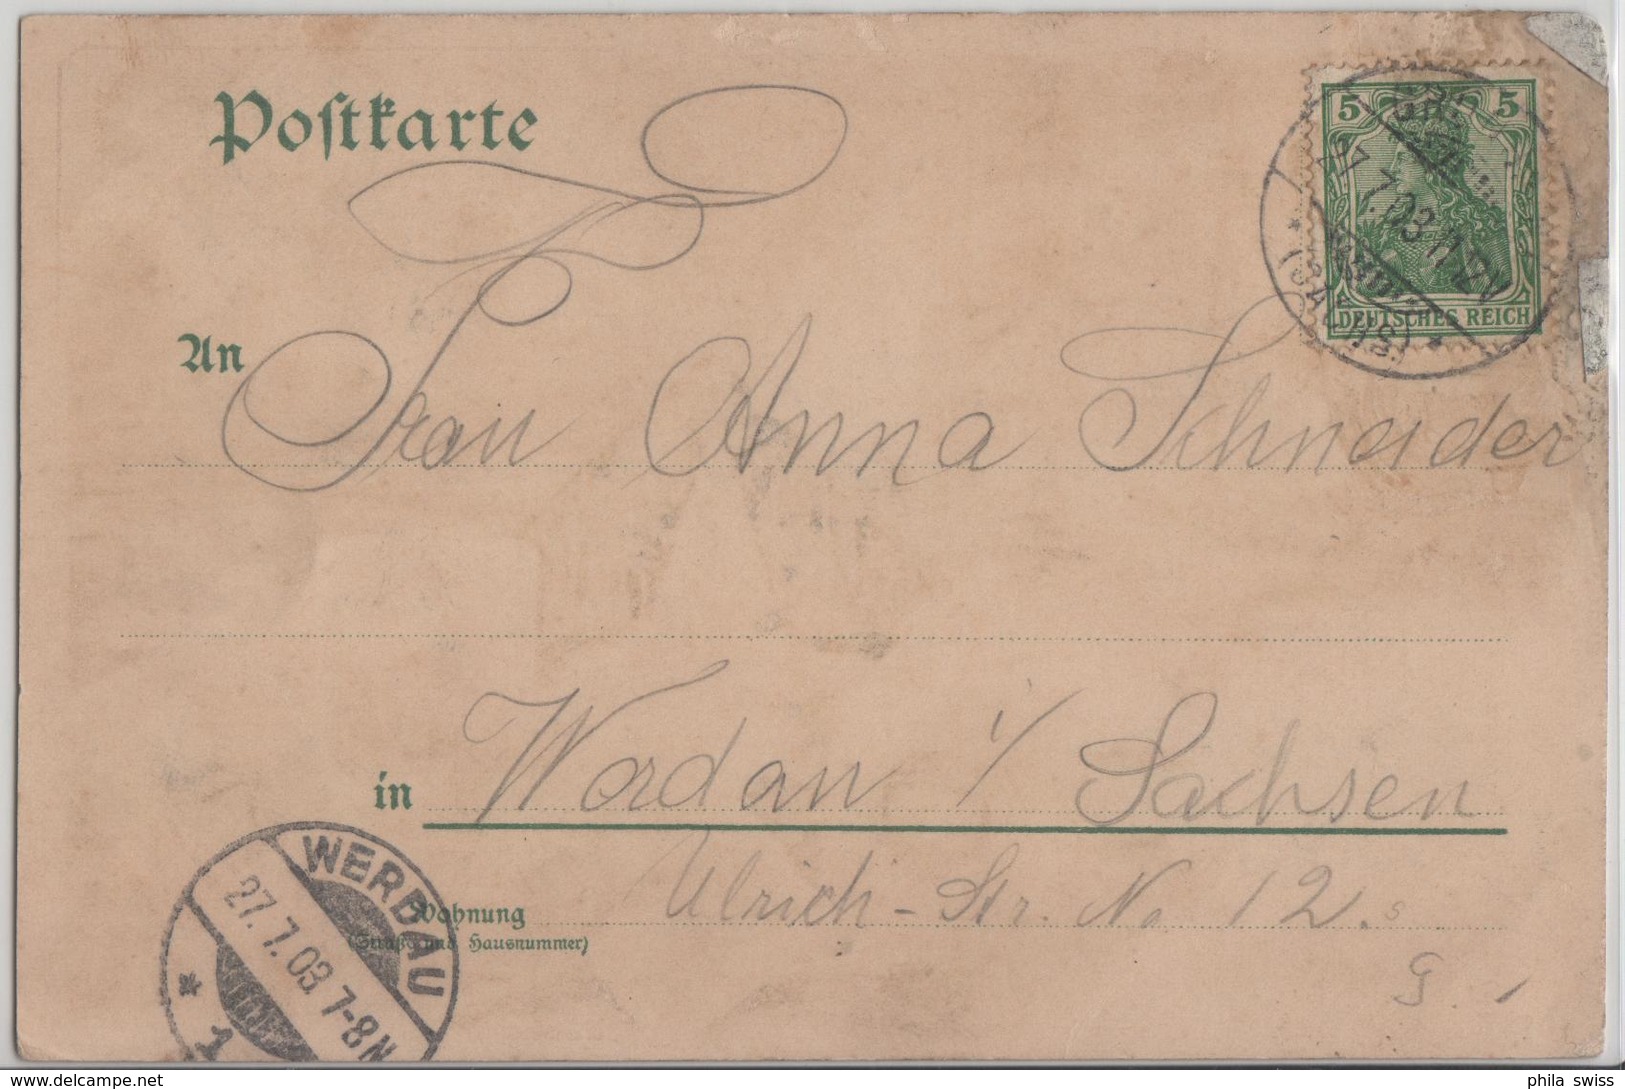 Postkarte
5 5
27.7.03.11-12V
(SACHS.)
DEUTSCHES REICH
An Frau Anna Schneider
in Werdau i/ Sachsen
Wohnung Ulrich-Str. No 12.
(Straße und Hausnummer)
WERDAU
27.7.03.7-8N
* 1
phila_swiss